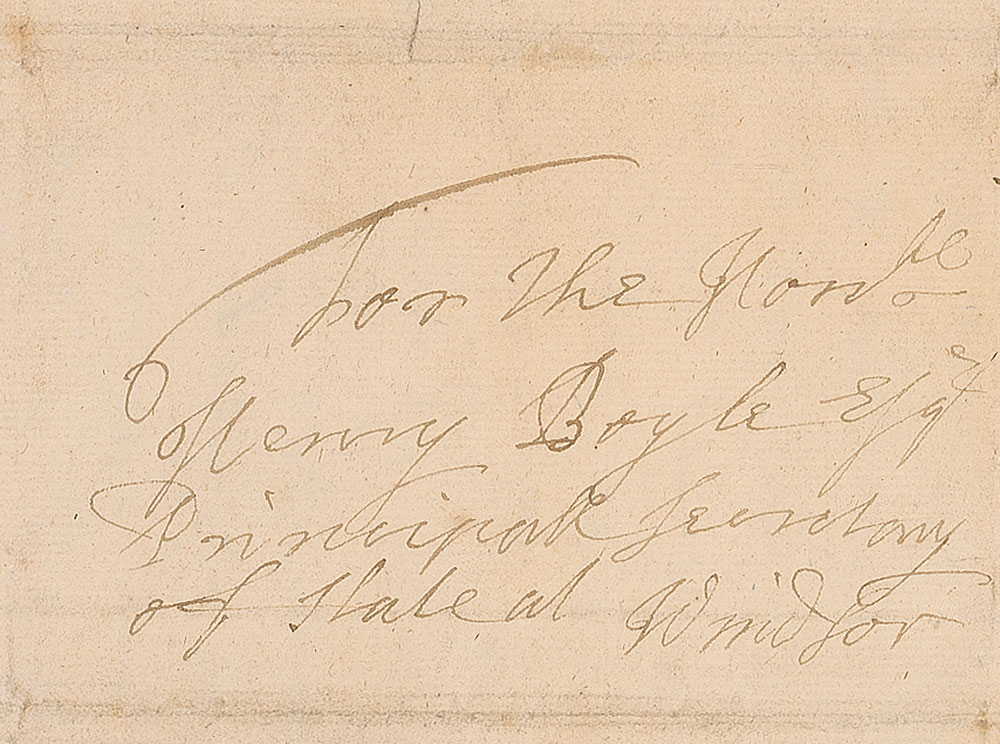 For the Honble
Henry Boyle Esqr
Principall Secretary
of State at Windsor